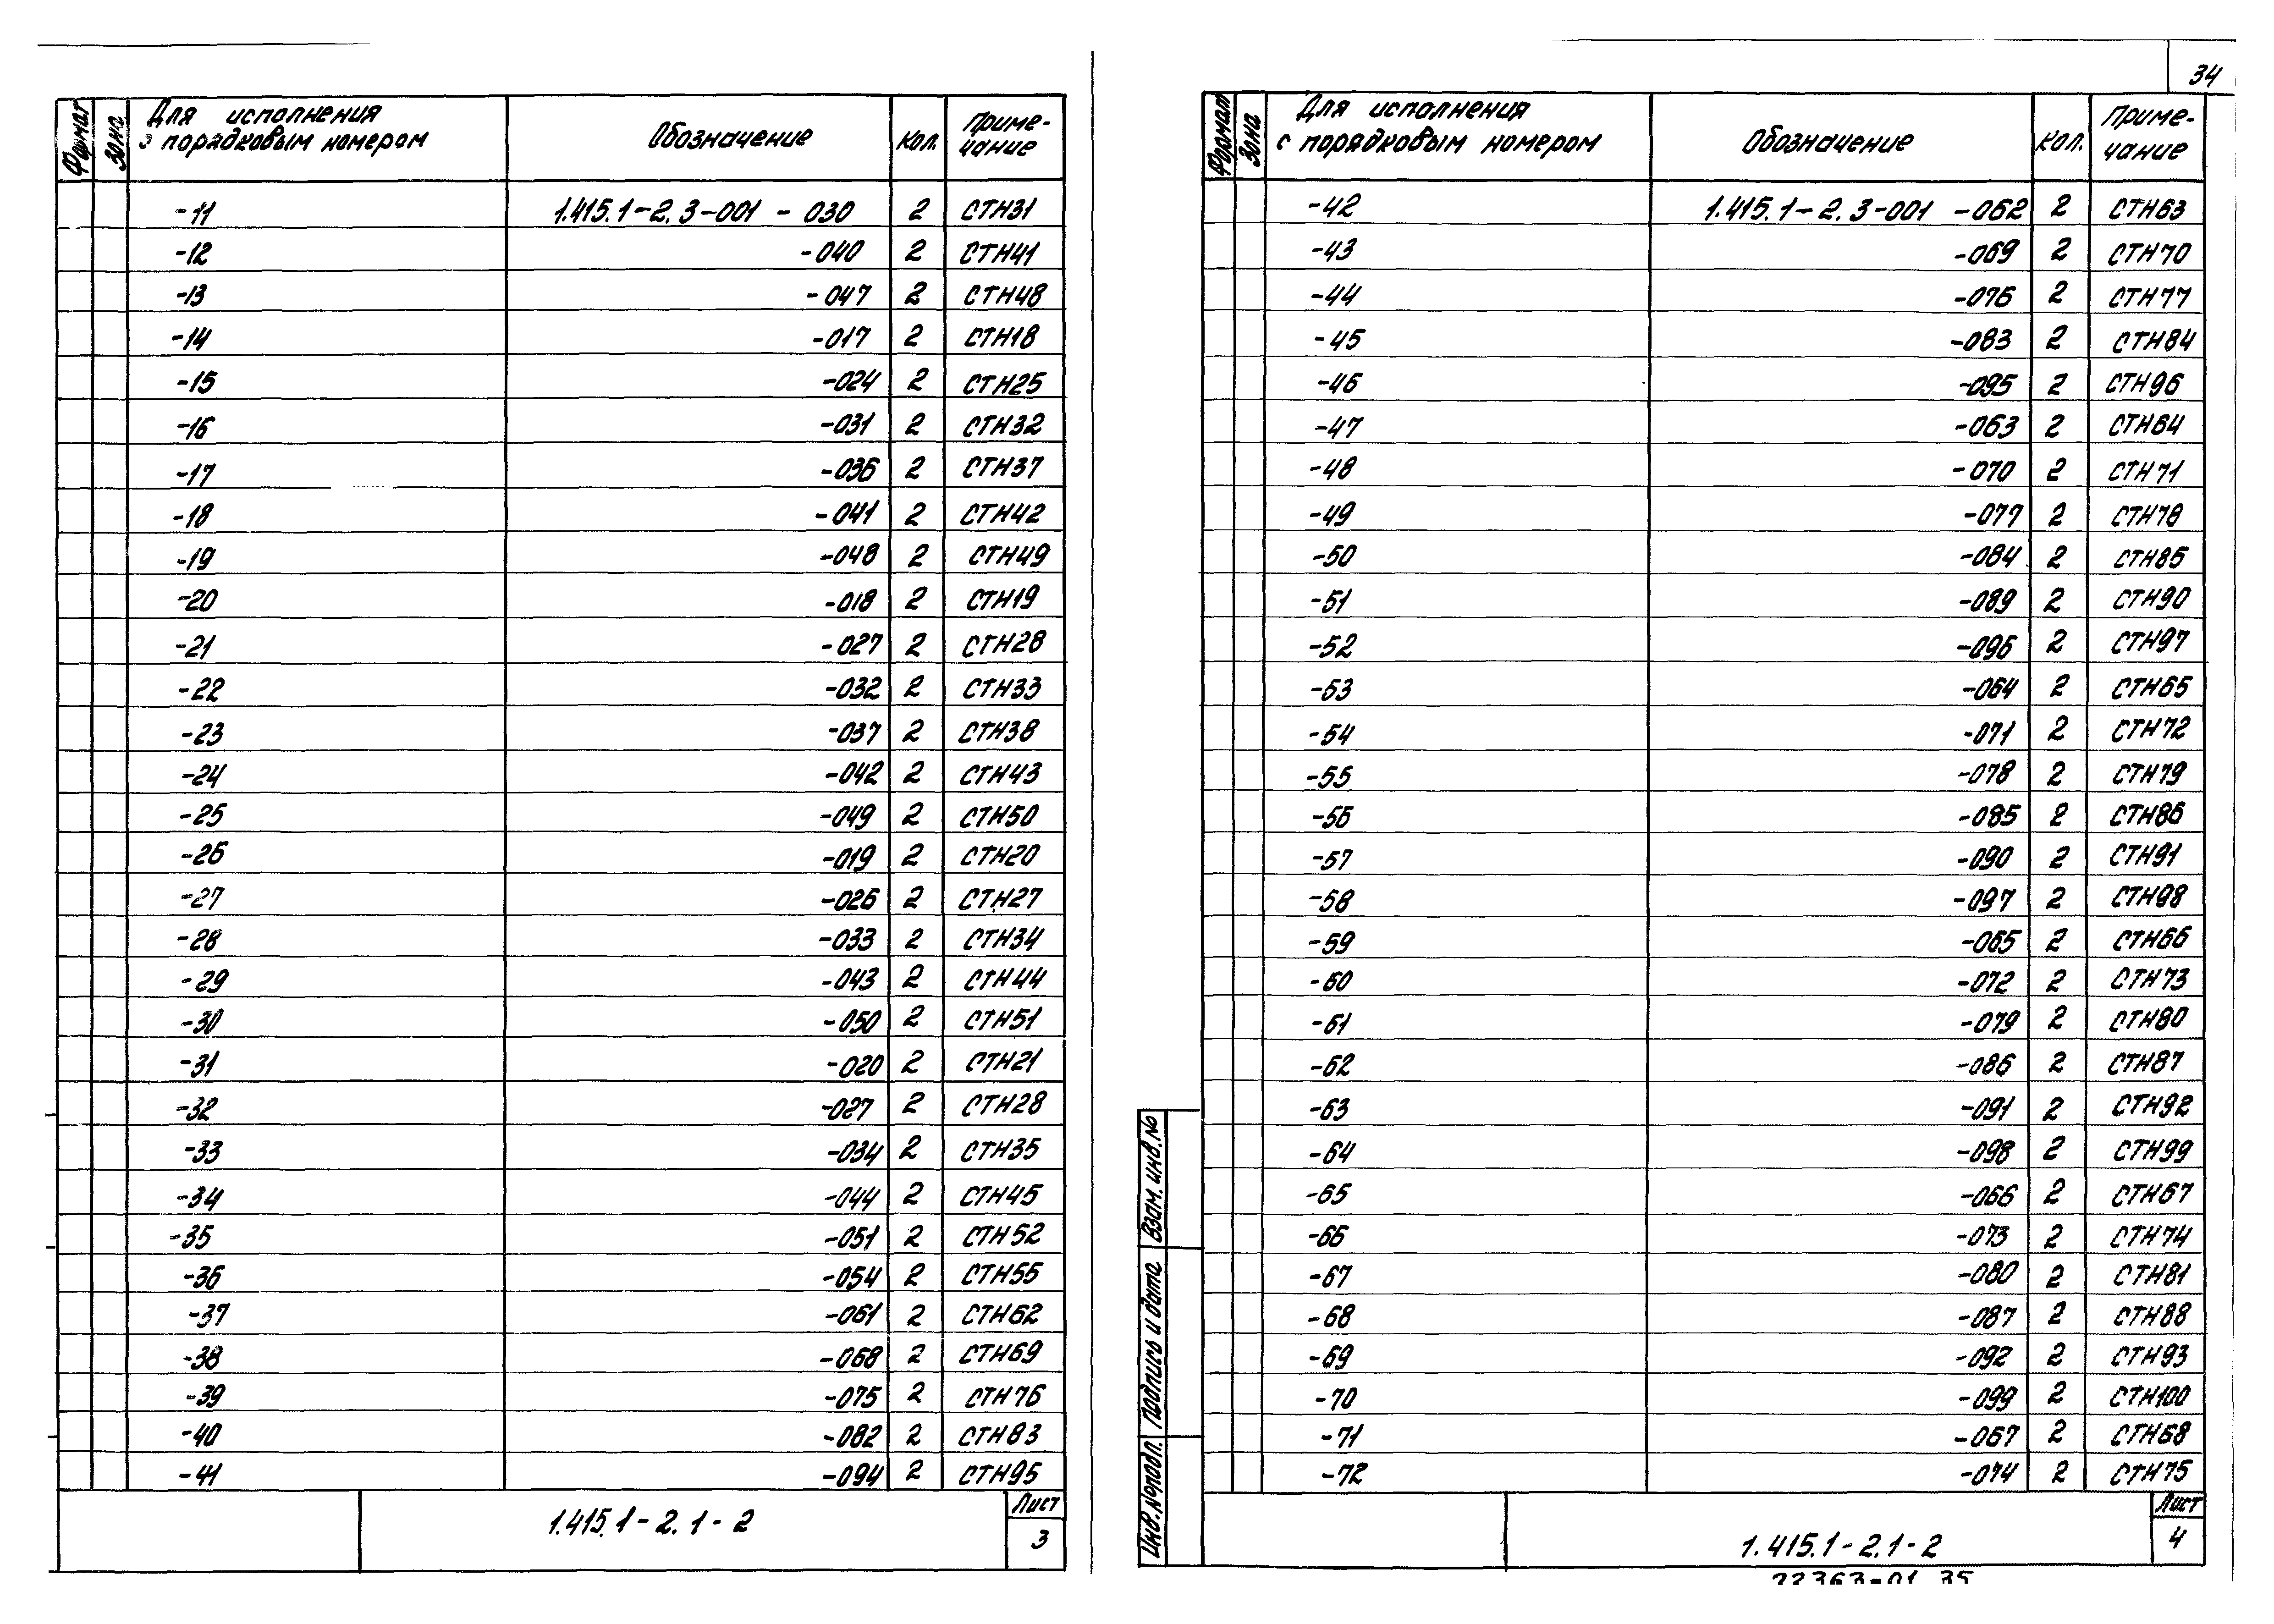 Формат
Зона
Для исполнения
с порядковым номером
Обозначение
Кол.
Приме-
чание
-11 1.415.1-2.3-001 - 030 2 СТН31
-12 -040 2 СТН41
-13 -047 2 СТН48
-14 -017 2 СТН18
-15 -024 2 СТН25
-16 -031 2 СТН32
-17 -036 2 СТН37
-18 -041 2 СТН42
-19 -048 2 СТН49
-20 -018 2 СТН19
-21 -027 2 СТН28
-22 -032 2 СТН33
-23 -037 2 СТН38
-24 -042 2 СТН43
-25 -049 2 СТН50
-26 -019 2 СТН20
-27 -026 2 СТН27
-28 -033 2 СТН34
-29 -043 2 СТН44
-30 -050 2 СТН51
-31 -020 2 СТН21
-32 -027 2 СТН28
-33 -034 2 СТН35
-34 -044 2 СТН45
-35 -051 2 СТН52
-36 -054 2 СТН55
-37 -061 2 СТН62
-38 -068 2 СТН69
-39 -075 2 СТН76
-40 -082 2 СТН83
-41 -094 2 СТН95
1.415.1-2.1-2
Лист
3
34
Формат
Зона
Для исполнения
с порядковым номером
Обозначение
Кол.
Приме-
чание
-42 1.415.1-2.3-001 -062 2 СТН63
-43 -069 2 СТН70
-44 -076 2 СТН77
-45 -083 2 СТН84
-46 -095 2 СТН96
-47 -063 2 СТН64
-48 -070 2 СТН71
-49 -077 2 СТН78
-50 -084 2 СТН85
-51 -089 2 СТН90
-52 -096 2 СТН97
-53 -064 2 СТН65
-54 -071 2 СТН72
-55 -078 2 СТН79
-56 -085 2 СТН86
-57 -090 2 СТН91
-58 -097 2 СТН98
-59 -065 2 СТН66
-60 -072 2 СТН73
-61 -079 2 СТН80
-62 -086 2 СТН87
-63 -091 2 СТН92
-64 -098 2 СТН99
-65 -066 2 СТН67
-66 -073 2 СТН74
-67 -080 2 СТН81
-68 -087 2 СТН88
-69 -092 2 СТН93
-70 -099 2 СТН100
-71 -067 2 СТН68
-72 -074 2 СТН75
Взам. инв. №
Подпись и дата
Инв. № подл.
1.415.1-2.1-2
Лист
4
22363-01 35